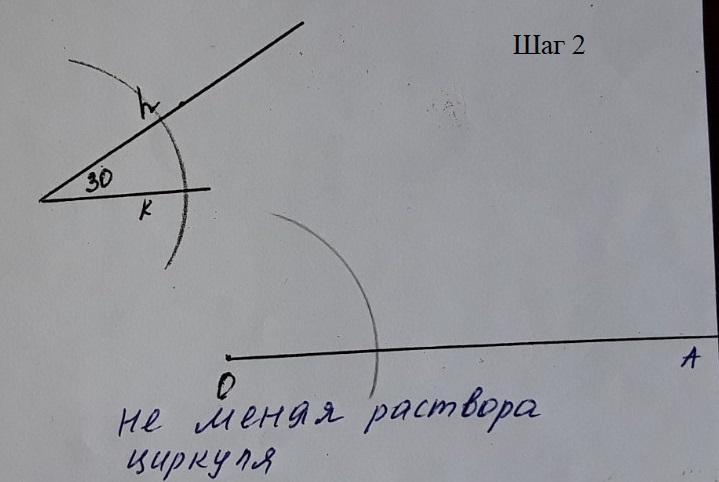 Шаг 2
h
30
K
O
A
не меняя раствора
циркуля